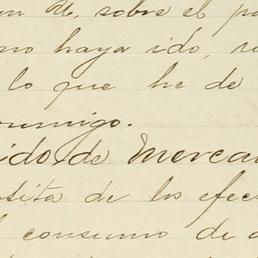 sobre el
no haya ido,
lo que he de
ido de Merca
sita de los efec
consumo de